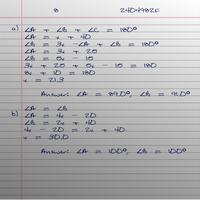 8 24D4982F
a) ∠A + ∠B + ∠C = 180°
∠A = x + 40
∠B = 3x - ∠A + ∠B = 180°
∠A = 3x + 25
∠B = 5x - 15
3x + 25 + 5x - 15 = 180
8x + 10 = 180
x = 21.3
Answer: ∠A = 89.0°, ∠B = 91.0°
b) ∠A = ∠B
∠A = 4x - 20
∠B = 2x + 40
4x - 20 = 2x + 40
x = 30.0
Answer: ∠A = 100°, ∠B = 100°